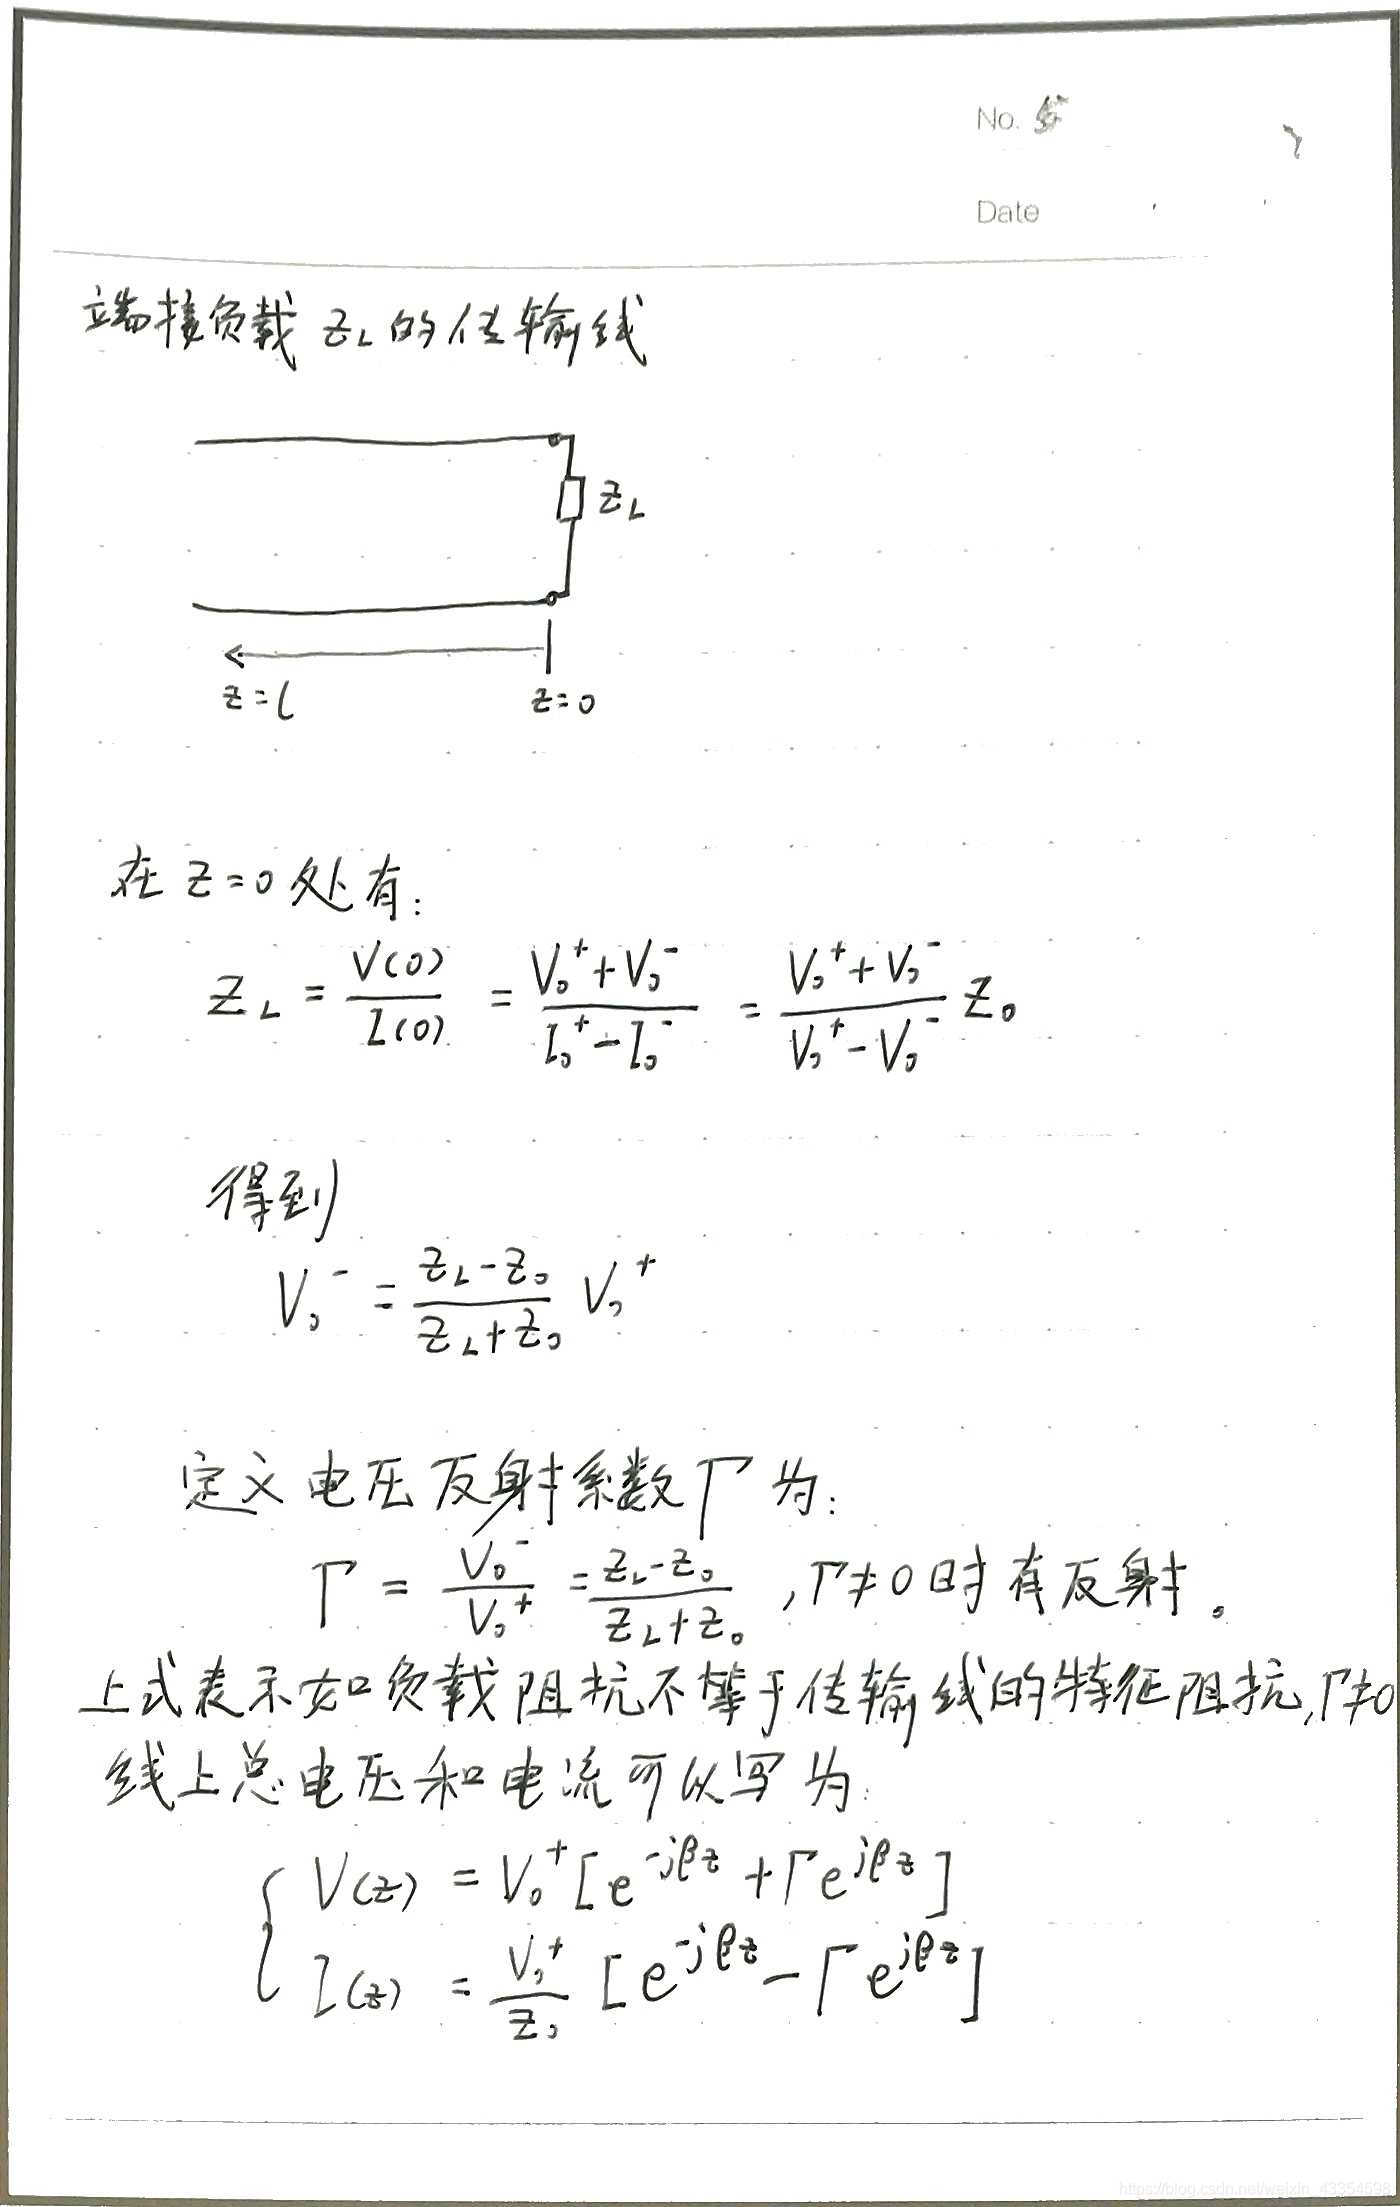 No. 5
Date
端接负载 Z_L 的传输线
Z_L
z=l z=0
在 z=0 处有:
Z_L = V(0)/I(0) = (V₀⁺+V₀⁻)/(I₀⁺-I₀⁻) = (V₀⁺+V₀⁻)/(V₀⁺-V₀⁻) Z₀
得到
V₀⁻ = (Z_L-Z₀)/(Z_L+Z₀) V₀⁺
定义电压反射系数Γ为:
Γ = V₀⁻/V₀⁺ = (Z_L-Z₀)/(Z_L+Z₀) , Γ≠0时有反射。
上式表示如负载阻抗不等于传输线的特征阻抗,Γ≠0
线上总电压和电流可以写为:
V(z) = V₀⁺[e^{-jβz}+Γe^{jβz}]
I(z) = V₀⁺/Z₀ [e^{-jβz}-Γe^{jβz}]